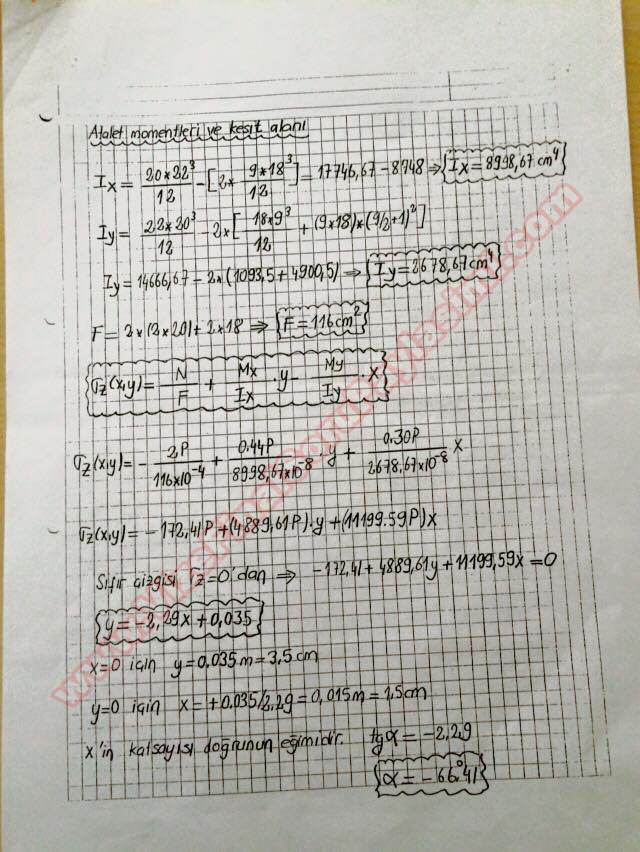 Atalet momentleri ve kesit alanı
Ix = 20*22³/12 - [2* 9*18³/12] = 17746,67 - 8748 ⇒ {Ix = 8998,67 cm⁴}
Iy = 22*20³/12 - 2*[18*9³/12 + (9*18)*(9/2+1)²]
Iy = 14666,67 - 2*(1093,5 + 4900,5) ⇒ {Iy = 2678,67 cm⁴}
F = 2*(2*20) + 2*18 ⇒ {F = 116 cm²}
σz(x,y) = N/F + Mx/Ix · y - My/Iy · x
σz(x,y) = - 2P/116x10⁻⁴ + 0.44P/8998,67x10⁻⁸ · y + 0.30P/2678,67x10⁻⁸ x
σz(x,y) = -172,41P + (4889,61P)·y + (11199.59P)x
Sıfır çizgisi σz=0'dan ⇒ -172,41 + 4889,61y + 11199,59x = 0
y = -2,29x + 0,035
x=0 için y = 0,035m = 3,5cm
y=0 için x = +0,035/2,29 = 0,015m = 1,5cm
x'in katsayısı doğrunun eğimidir. tgα = -2,29
α = -66°.41